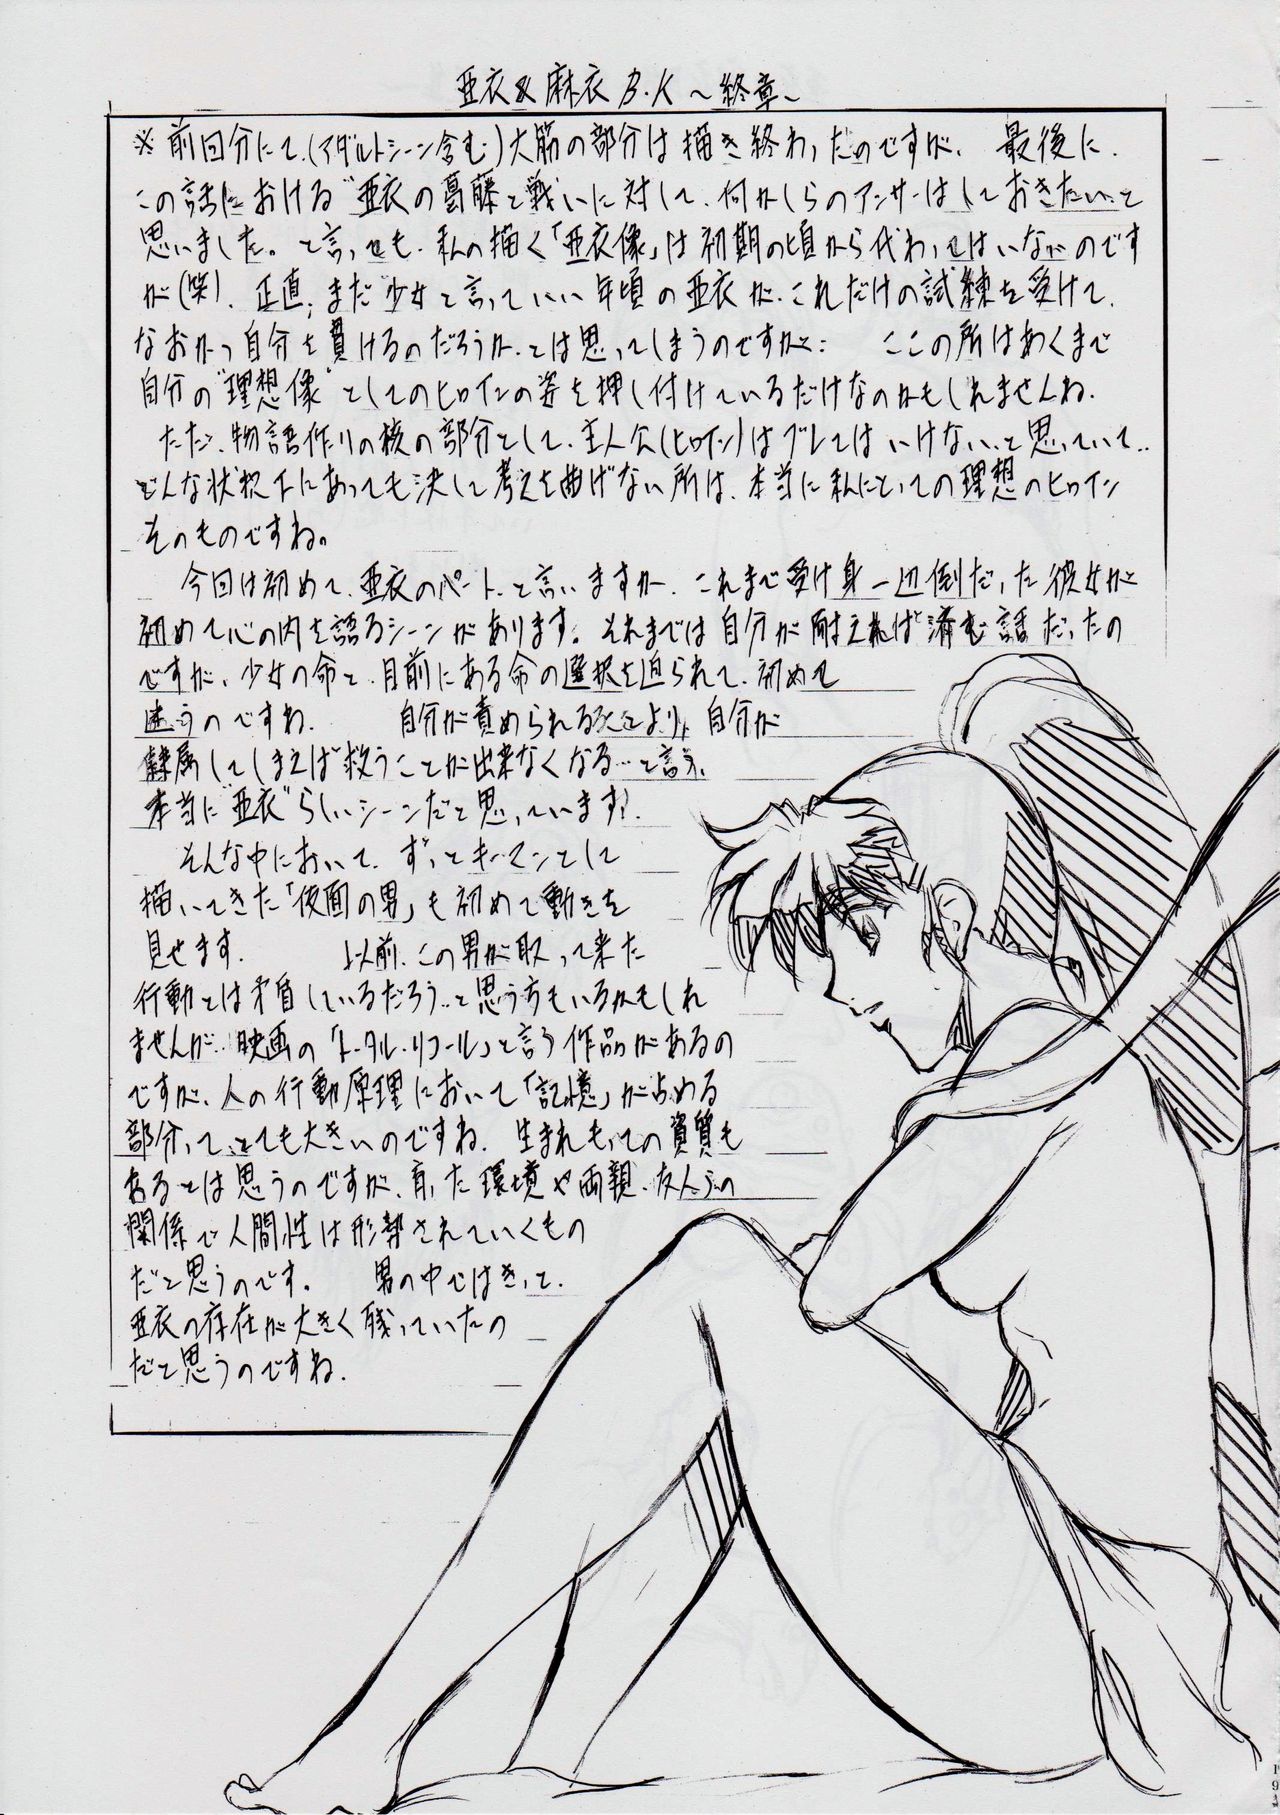 亜衣&麻衣 B.K ～終章～
※前回分にて、(アダルトシーン含む)大筋の部分は描き終わったのですが、最後に、
この話における"亜衣の葛藤と戦いに対して、何かしらのアンサーはしておきたい、と
思いました。と言っても、私の描く「亜衣像」は初期の頃から代わってはいないのです
が(笑)、正直、まだ少女と言っていい年頃の亜衣が、これだけの試練を受けて、
なおかつ自分を貫けるのだろうか、とは思ってしまうのですが… ここの所はあくまで
自分の"理想像"としてのヒロインの姿を押し付けているだけなのかもしれませんね、
ただ、物語作りの核の部分として、主人公(ヒロイン)はブレてはいけない、と思っていて‥
どんな状況下にあっても決して考えを曲げない所は、本当に私にとっての理想のヒロイン
そのものですね。
今回は初めて、亜衣のパート、と言いますか、これまで受け身一辺倒だった彼女が
初めて心の内を語るシーンがあります。それまでは自分が耐えれば済む話だったの
ですが、少女の命と、目前にある命の選択を迫られて、初めて
迷うのですね、 自分が責められることより、自分が
隷属してしまえば救うことが出来なくなる…と言う、
本当に"亜衣"らしいシーンだと思っています?
そんな中において、ずっとキーマンとして
描いてきた「仮面の男」も初めて動きを
見せます、 以前、この男が取って来た
行動とは矛盾しているだろう…と思う方もいるかもしれ
ませんが‥映画の「トータル・リコール」と言う作品があるの
ですが、人の行動原理において「記憶」が占める
部分って、とても大きいのですね、生まれもっての資質も
あるとは思うのですが、育った環境や両親、友人らの
関係で人間性は形勢されていくもの
だと思うのです。 男の中ではきっと、
亜衣の存在が大きく残っていたの
だと思うのですね、